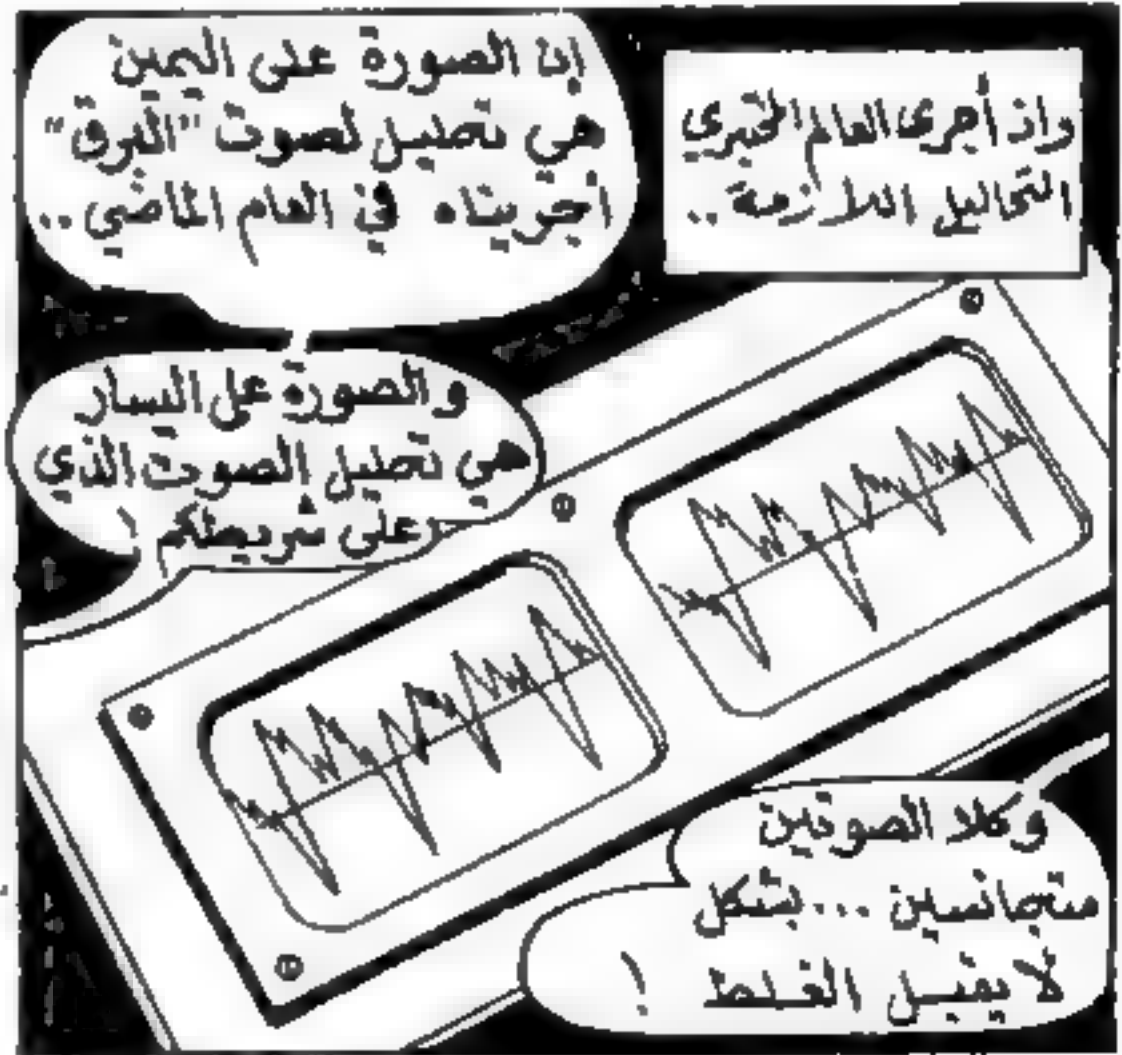 واذ أجرى العالم المخبري
التحاليل اللازمة ..
إن الصورة على اليمين
هي تحليل لصوت "البرق"
أجريناه في العام الماضي ..
والصورة على اليسار
هي تحليل الصوت الذي
على شريطكم !
وكلا الصوتين
متجانسين ... بشكل
لا يقبل الغلط !